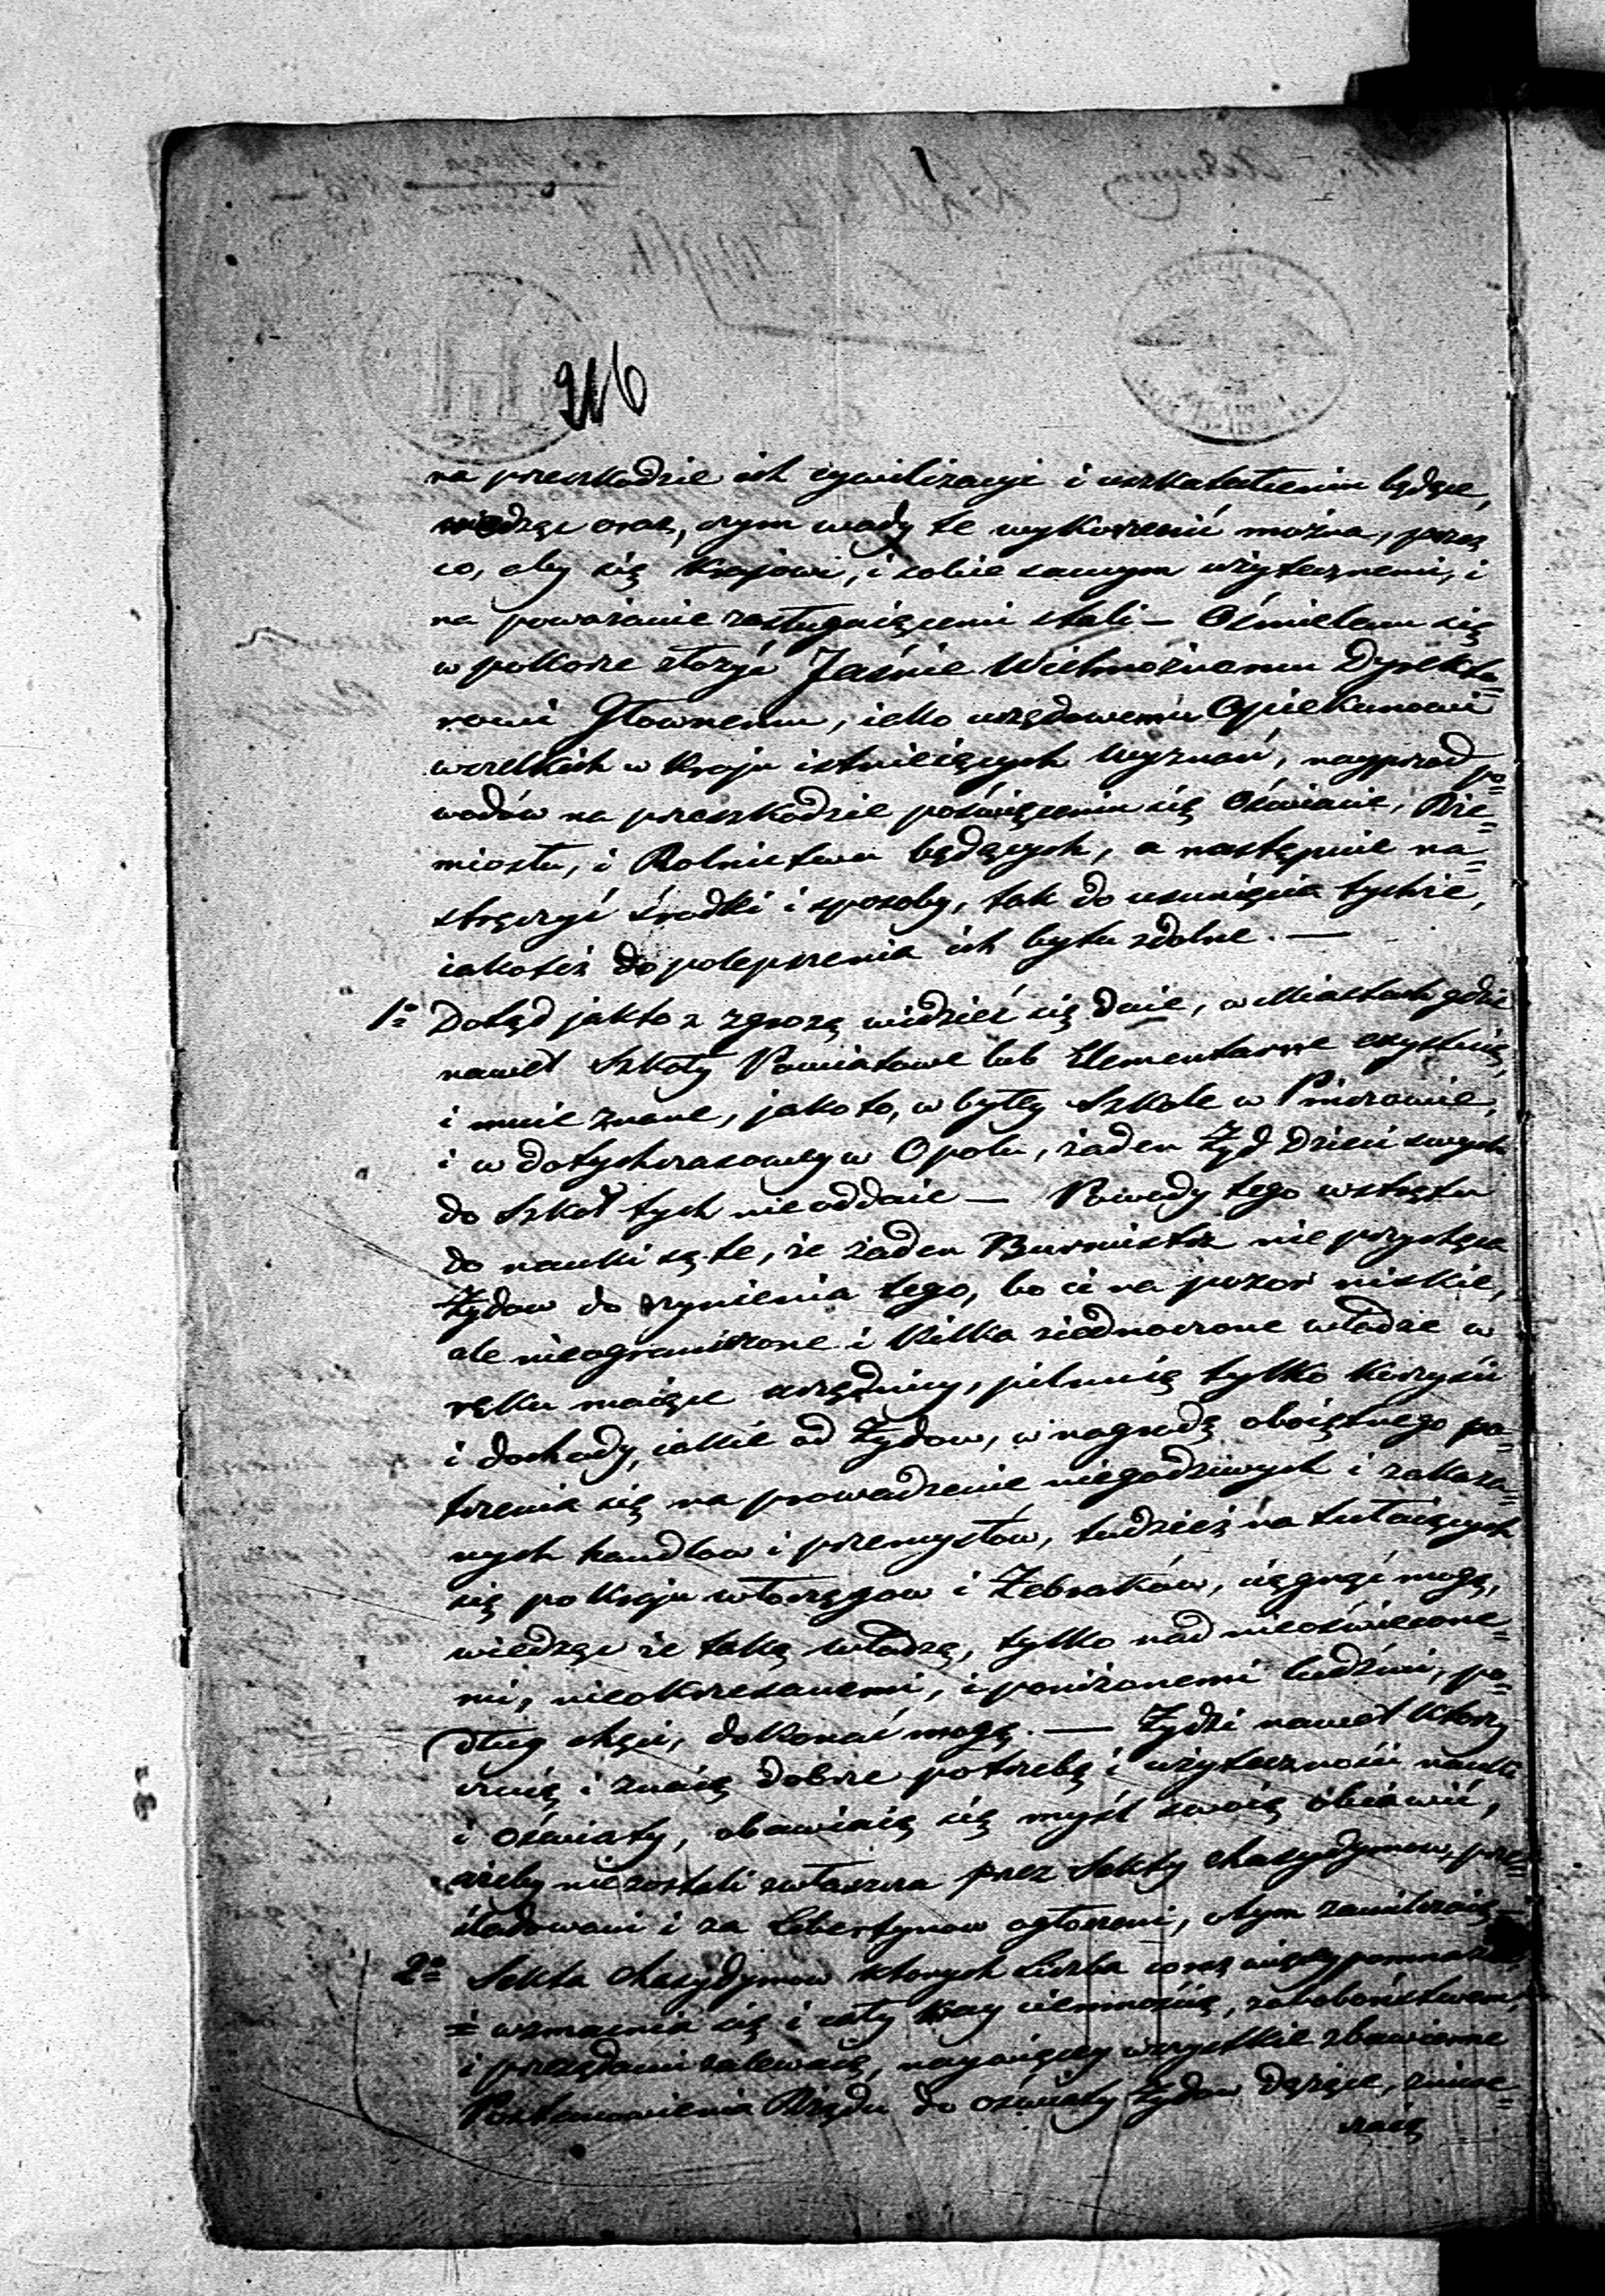 216
na przeszkodzie ich cywilizacyi i uszkałtceniu będące,
wiedząc oraz, czym wady te wykorenić można, przez
co, aby się Krajowi, i sobie samym użytecznemi, i
na poważanie zasługuiącemi stali — Ośmielam się
w pokorze złożyć Jaśnie Wielmożnemu Dyrekto=
rowi Głownemu, iako urzędowemu Opiekunowi
wszelkich w Kraju istnieiących Wyznań, nayprzod po=
wodów na przeszkodzie poświęceniu się Oświacie, Rze=
miosłu, i Rolnictwu będących, a następnie na=
stręczyć środki i sposoby, tak do usunięcia tychże,
iakoteż do polepszenia ich bytu zdolne. —
1o Dotąd jakto z zgrozą widzieć się daie, w Miastach gdzie
nawet Szkoły Powiatowe lub Elementarne exystuią,
i mnie znane, jako to, w byłey Szkole w
i w dotychczasowey w Opolu, żaden Żyd Dzieci swych
do Szkoł tych nie oddaie — Powody tego wstrętu
do nauki są te, że żaden Burmistrz nie przychęca
Żydow do czynienia tego, bo ci na pozor niskie,
ale nieograniczone i Kilka ziednoczone władze w
ręku maiące urzędnicy, pilnuią tylko Korzyści
i dochody, iakie od Żydow, w nagrodę oboiętnego pa=
trzenia się na prowadzenie niegodziwych i zakaza=
nych handlow i przemysłów, tudzież na tułaiących
się po Kraju włoczęgow i Żebraków, ciągnąć mogą,
wiedząc że taką władzą, tylko nad nieoświecone=
mi, nieokrzesanemi, i poniżonemi ludźmi, po=
dług chęci, dokonać mogą. — Żydzi nawet Którzy
czuią i znaią dobrze potrzebę i użyteczność nauki
i oświaty, obawiaią się myśl swoię obiawić,
ażeby nie zostali zwłaszcza przez Sekty Chasydymow, prze=
śladowani i za Libertynow ogłoszeni, o tym zamilczaią —
2o Sekta Chasydymow ktorych Liczba coraz więcey pomnaża
= wzmacnia się i cały Kray ciemnością, zabobonstwem,
i przesądami zalewaią, naywięcey wszystkie zbawienne
Postanowienia Rządu do oświaty Żydow dążące, znisz=
czaią